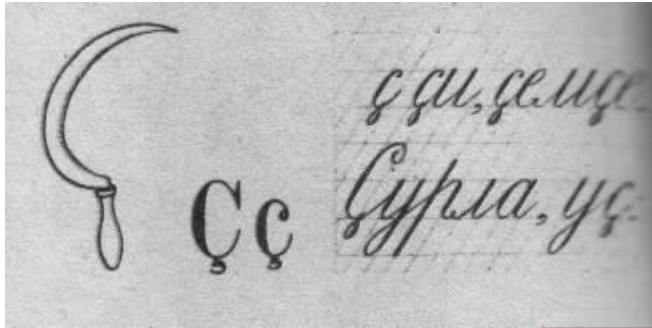 Ҫ ҫ
ҫ ҫи, ҫемҫе
Ҫурла, уҫ